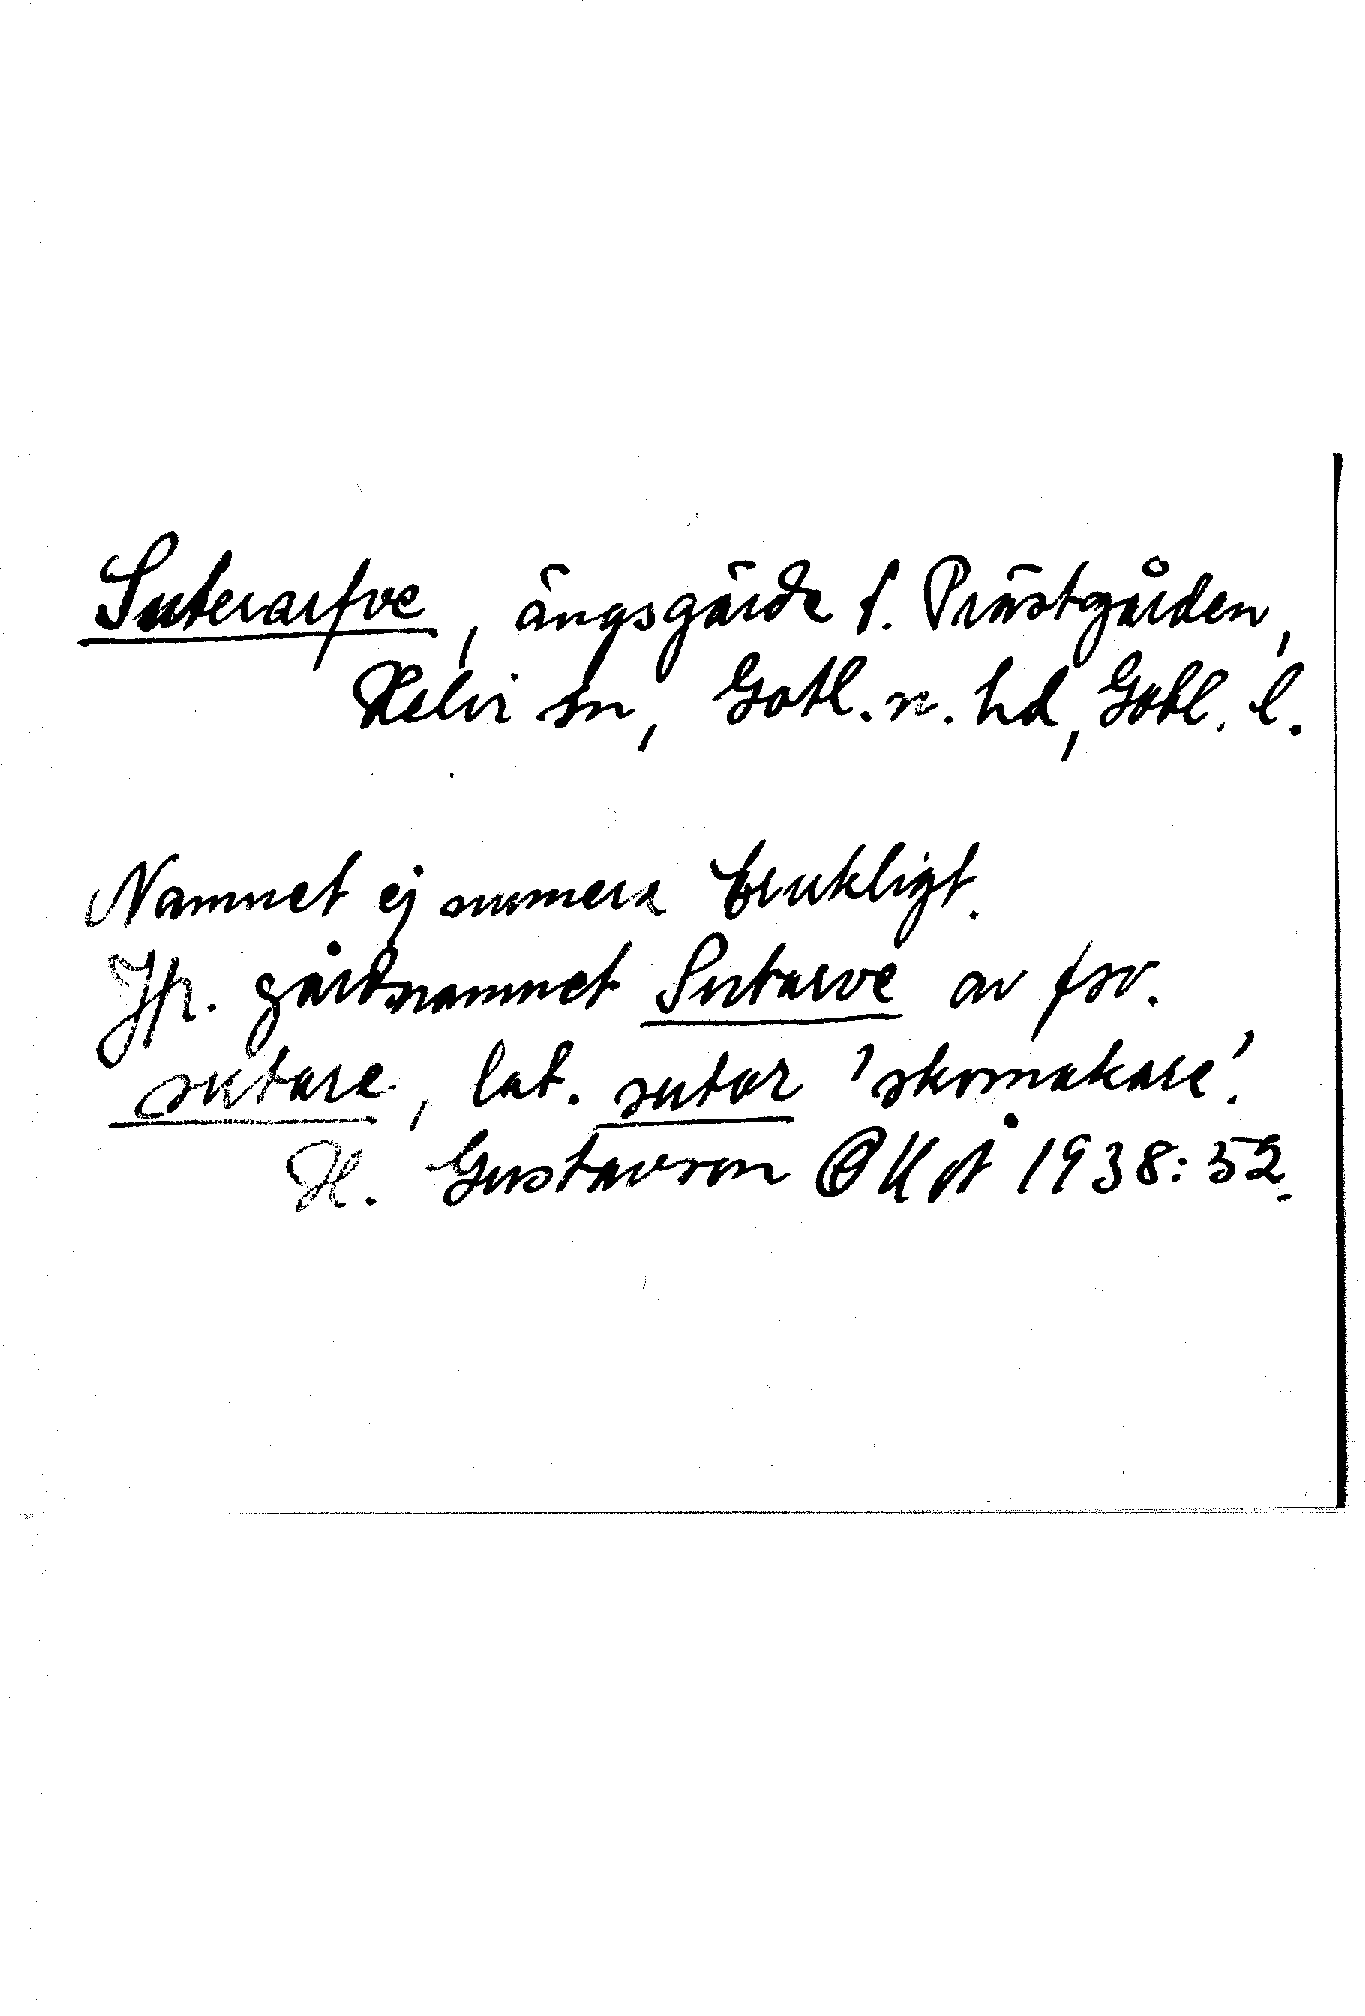 Suterarfve, ängsgärde t. Prästgården,
Helvi sn, Gotl. n. hd, Gotl. l.
Namnet ej numera brukligt.
Jfr. gårdnamnet Sutarve av fsv.
sutare, lat. sutor 'skomakare'.
H. Gustavson OUÅ 1938:52.